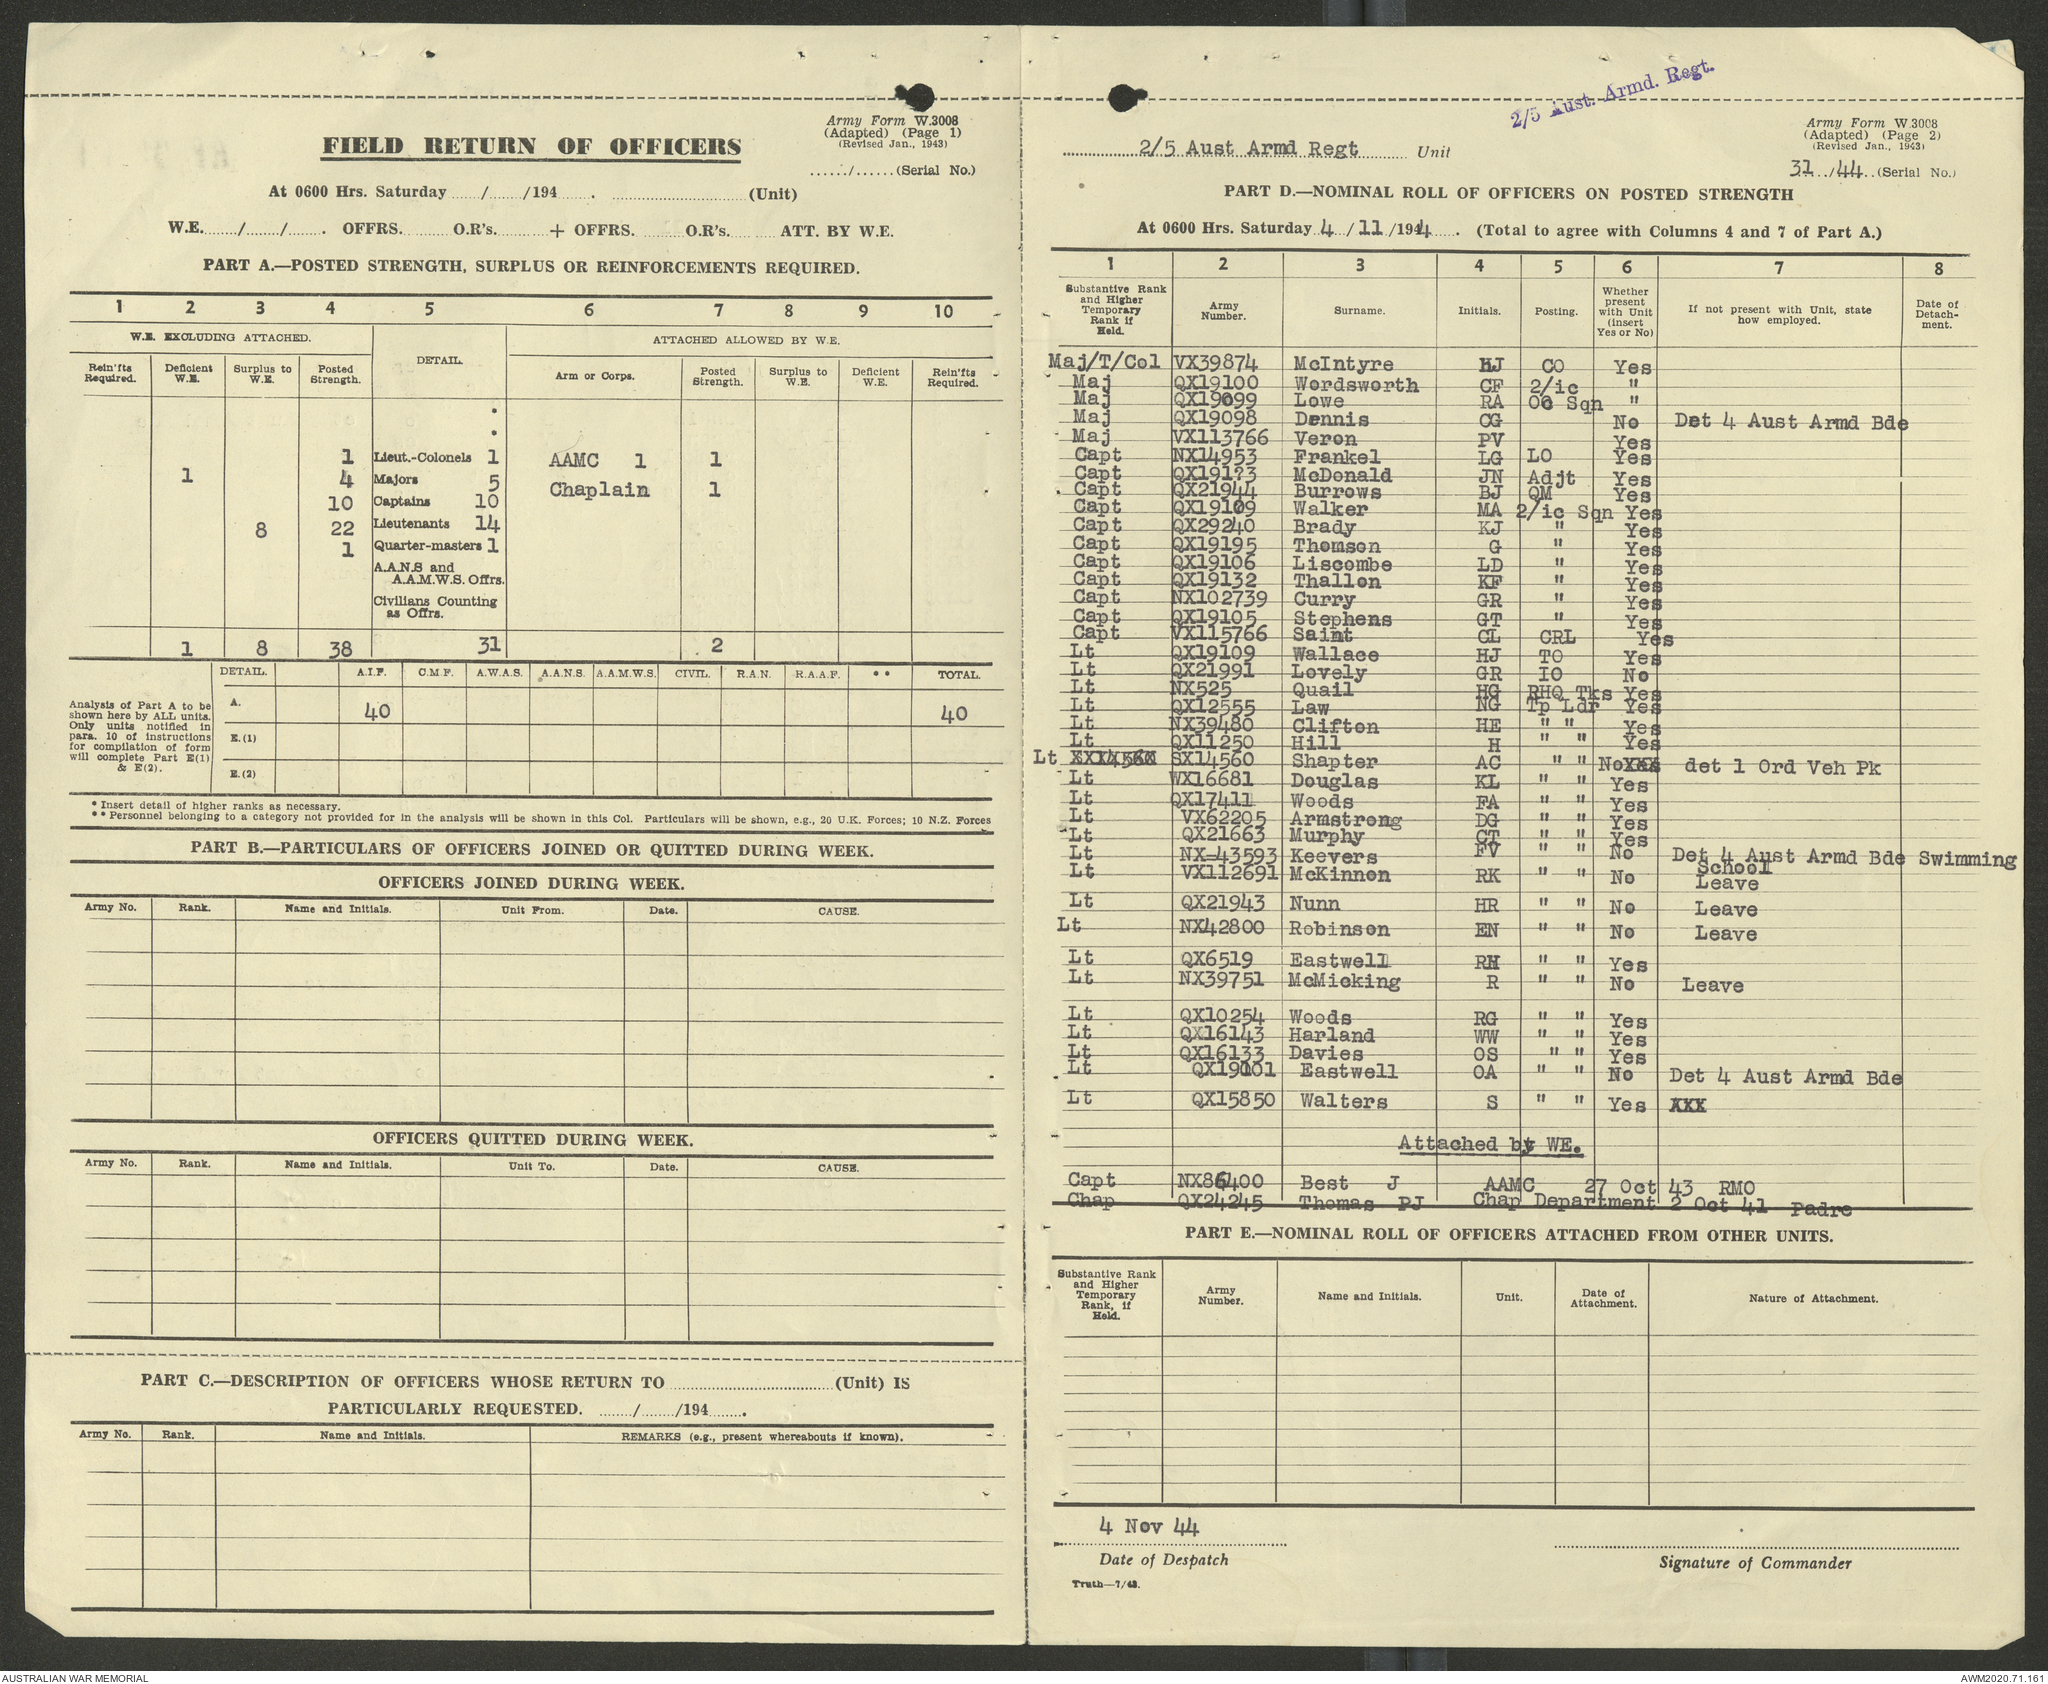 Army Form W.3008
(Adapted) (Page 1)
(Revised Jan., 1943)
....../......(Serial No.)
FIELD RETURN OF OFFICERS
At 0600 Hrs. Saturday ....../....../194...... . ..............................(Unit)
W.E......../......../........ OFFRS. .......... O.R's. .......... + OFFRS. .......... O.R's. .......... ATT. BY W.E.
PART A.—POSTED STRENGTH, SURPLUS OR REINFORCEMENTS REQUIRED.
1 2 3 4 5 6 7 8 9 10
W.E. EXCLUDING ATTACHED. DETAIL. ATTACHED ALLOWED BY W.E.
Rein'fts Required. Deficient W.E. Surplus to W.E. Posted Strength. Arm or Corps. Posted Strength. Surplus to W.E. Deficient W.E. Rein'fts Required.
*
*
1 Lieut.-Colonels 1 AAMC 1 1
1 4 Majors 5 Chaplain 1
10 Captains 10
8 22 Lieutenants 14
1 Quarter-masters 1
A.A.N.S and
A.A.M.W.S. Offrs.
Civilians Counting
as Offrs.
1 8 38 31 2
DETAIL. A.I.F. C.M.F. A.W.A.S. A.A.N.S. A.A.M.W.S. CIVIL. R.A.N. R.A.A.F. ** TOTAL.
Analysis of Part A to be
shown here by ALL units.
Only units notified in
para. 10 of instructions
for compilation of form
will complete Part E(1)
& E(2).
A. 40 40
E.(1)
E.(2)
* Insert detail of higher ranks as necessary.
** Personnel belonging to a category not provided for in the analysis will be shown in this Col. Particulars will be shown, e.g., 20 U.K. Forces; 10 N.Z. Forces
PART B.—PARTICULARS OF OFFICERS JOINED OR QUITTED DURING WEEK.
OFFICERS JOINED DURING WEEK.
Army No. Rank. Name and Initials. Unit From. Date. CAUSE.
OFFICERS QUITTED DURING WEEK.
Army No. Rank. Name and Initials. Unit To. Date. CAUSE.
PART C.—DESCRIPTION OF OFFICERS WHOSE RETURN TO..............................(Unit) IS
PARTICULARLY REQUESTED. ......../......../194........ .
Army No. Rank. Name and Initials. REMARKS (e.g., present whereabouts if known).
2/5 Aust. Armd. Regt.
Army Form W.3008
(Adapted) (Page 2)
(Revised Jan., 1943)
2/5 Aust Armd Regt Unit
31../44..(Serial No.)
PART D.—NOMINAL ROLL OF OFFICERS ON POSTED STRENGTH
At 0600 Hrs. Saturday 4 / 11 /1944 . (Total to agree with Columns 4 and 7 of Part A.)
1 2 3 4 5 6 7 8
Substantive Rank and Higher Temporary Rank if Held. Army Number. Surname. Initials. Posting. Whether present with Unit (insert Yes or No) If not present with Unit, state how employed. Date of Detachment.
Maj/T/Col VX39874 McIntyre HJ CO Yes
Maj QX19100 Wordsworth CF 2/ic "
Maj QX19099 Lowe RA OC Sqn "
Maj QX19098 Dennis CG No Det 4 Aust Armd Bde
Maj VX113766 Veron PV Yes
Capt NX14953 Frankel LG LO Yes
Capt QX191?3 McDonald JN Adjt Yes
Capt QX21944 Burrows BJ QM Yes
Capt QX19109 Walker MA 2/ic Sqn Yes
Capt QX29240 Brady KJ " Yes
Capt QX19195 Thomson G " Yes
Capt QX19106 Liscombe LD " Yes
Capt QX19132 Thallon KF " Yes
Capt NX102739 Curry GR " Yes
Capt QX19105 Stephens GT " Yes
Capt VX115766 Saint CL CRL Yes
Lt QX19109 Wallace HJ TO Yes
Lt QX21991 Lovely GR IO No
Lt NX525 Quail HG RHQ Tks Yes
Lt QX12555 Law NG Tp Ldr Yes
Lt NX39480 Clifton HE " " Yes
Lt QX11250 Hill H " " Yes
Lt SX14560 Shapter AC " " No det 1 Ord Veh Pk
Lt WX16681 Douglas KL " " Yes
Lt QX17411 Woods FA " " Yes
Lt VX62205 Armstrong DG " " Yes
Lt QX21663 Murphy CT " " Yes
Lt NX-43593 Keevers FV " " No Det 4 Aust Armd Bde Swimming School
Lt VX112691 McKinnon RK " " No Leave
Lt QX21943 Nunn HR " " No Leave
Lt NX42800 Robinson EN " " No Leave
Lt QX6519 Eastwell RH " " Yes
Lt NX39751 McMicking R " " No Leave
Lt QX10254 Woods RG " " Yes
Lt QX16143 Harland WW " " Yes
Lt QX16133 Davies OS " " Yes
Lt QX19001 Eastwell OA " " No Det 4 Aust Armd Bde
Lt QX15850 Walters S " " Yes XXX
Attached by WE.
Capt NX86400 Best J AAMC 27 Oct 43 RMO
Chap QX24245 Thomas PJ Chap Department 2 Oct 41 Padre
PART E.—NOMINAL ROLL OF OFFICERS ATTACHED FROM OTHER UNITS.
Substantive Rank and Higher Temporary Rank, if Held. Army Number. Name and Initials. Unit. Date of Attachment. Nature of Attachment.
4 Nov 44
Date of Despatch
Signature of Commander
Truth—7/43.
AUSTRALIAN WAR MEMORIAL
AWM2020.71.161